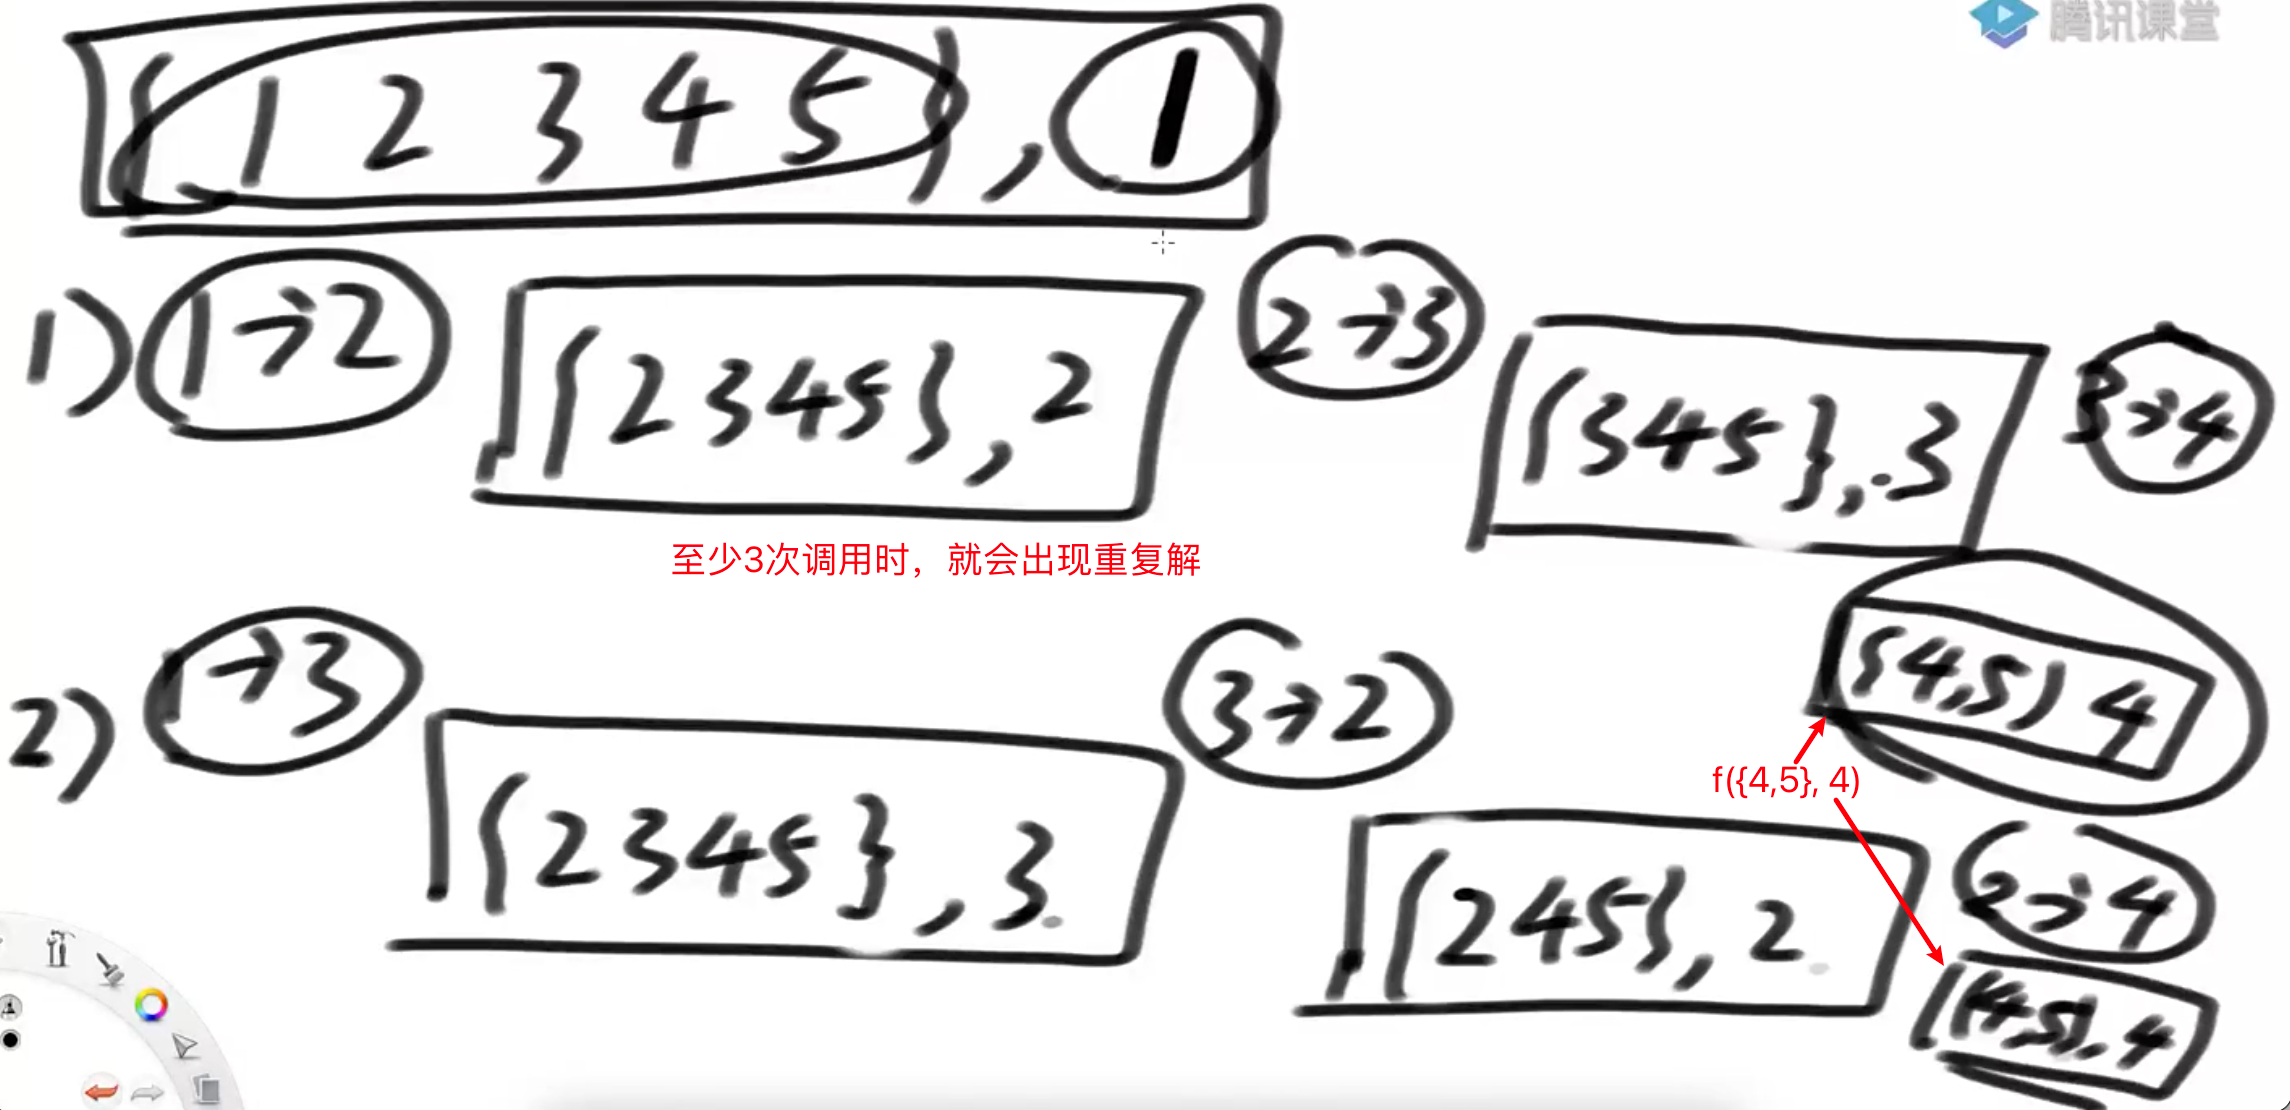 腾讯课堂
{ 1 2 3 4 5 } , 1
1) 1→2 {2345}, 2 2→3 {345}, 3 3→4
至少3次调用时，就会出现重复解
{4,5} 4
2) 1→3 {2345}, 3 3→2 {245}, 2 2→4
f({4,5}, 4)
{4,5}, 4